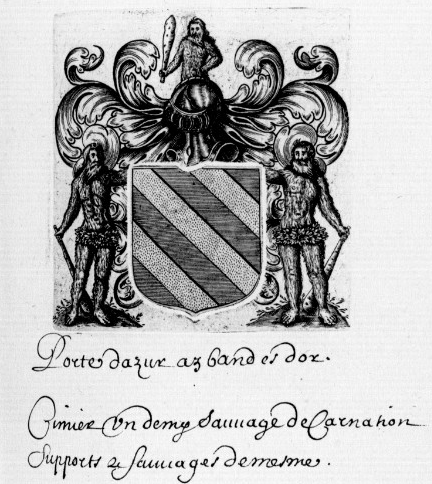 Porte dazur a 3 bandes dor.
Cimier Un demy Sauuage de Carnation
Supports 2 sauuages demesme.